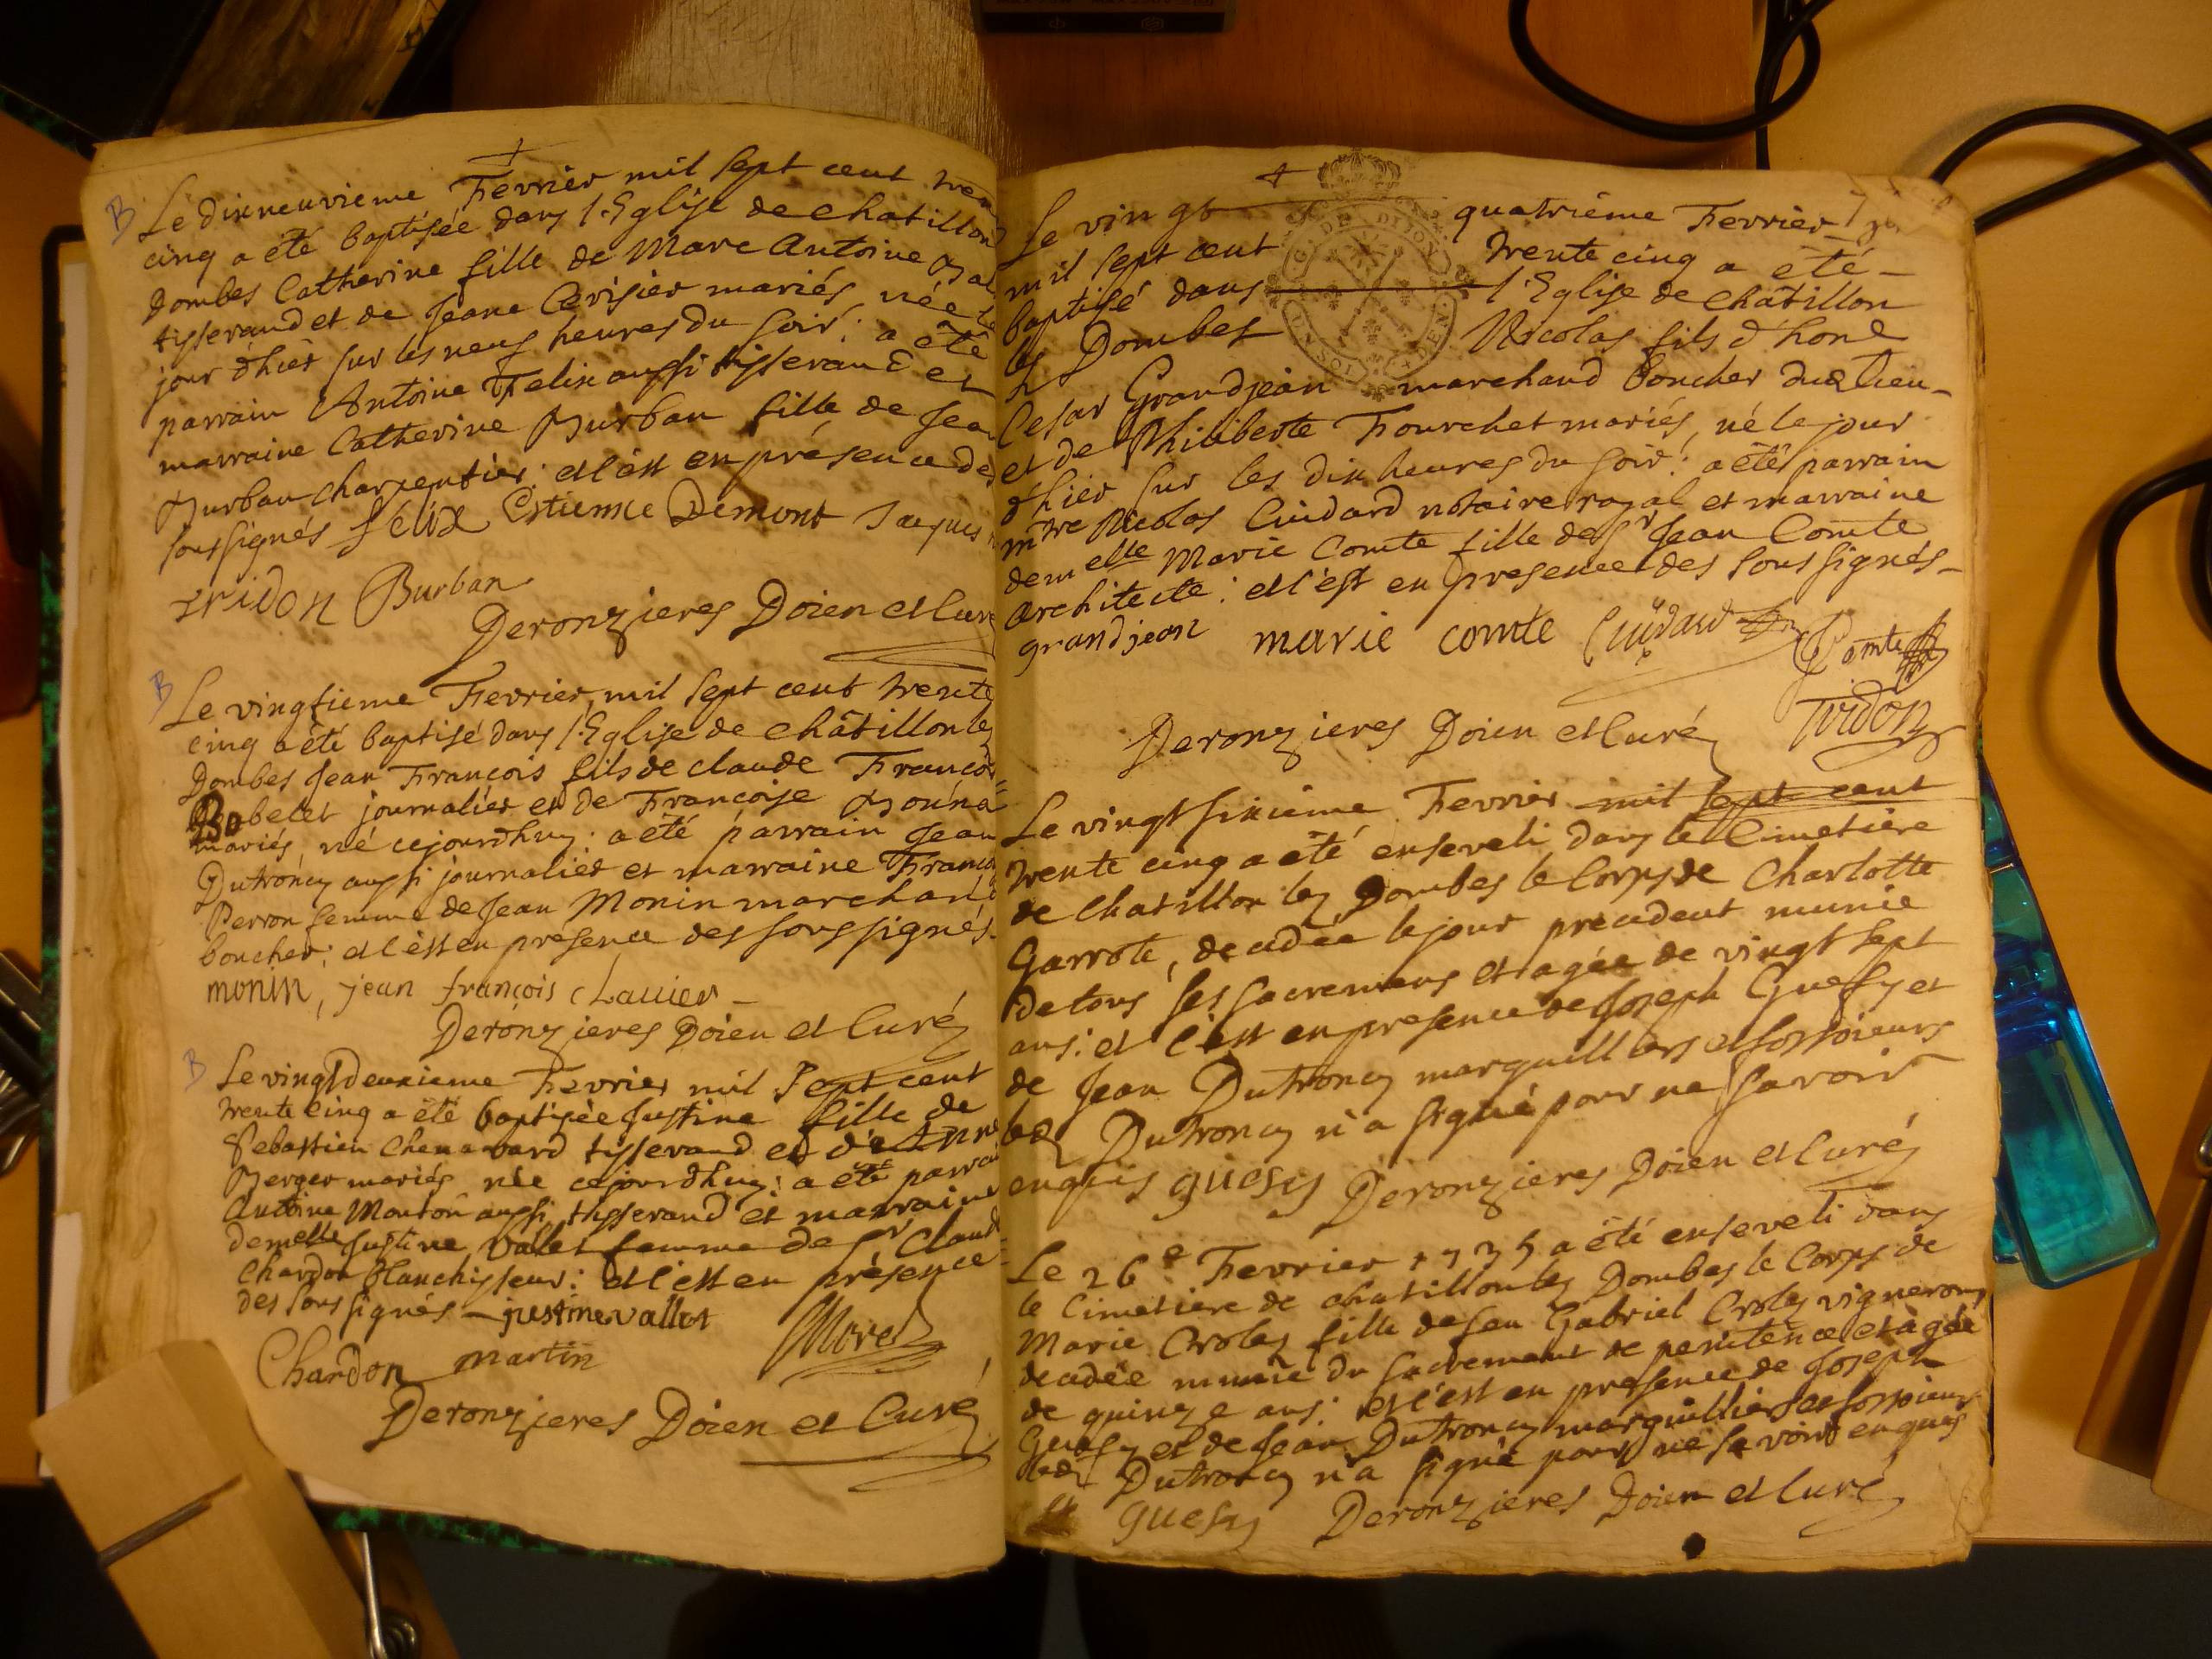 Le dixneuvieme Fevrier mil sept cent
cinq a été baptisée dans l'Eglise de chatillon
Dombes Catherine fille de Marc Antoine
tisserand et de Jeane Cerisier mariés, née
jour d'hier sur les neuf heures du soir: a été
parrain Antoine Felix aussi tisserand et
marraine Catherine Burban fille de Jean
Burban charpentier: et c'est en présence des
soussignés felix Estienne Demont Jaques
tridon Burban
Deronzieres Doien et Curé
Le vingtieme Fevrier, mil sept cent trente
cinq a été baptisé dans l'Eglise de châtillon les
Dombes Jean François fils de claude François
journalier et de Françoise
mariés, né cejourdhuy: a été parrain Jean
Dutroncy aussi journalier et marraine
Perron femme de Jean Monin marchand
boucher: et c'est en présence des soussignés
monin, jean françois Lauier
Deronzieres Doien et Curé
Le vingtdeuxieme Fevrier mil sept cent
trente cinq a été baptisée Justine fille de
Sebastien Chenavard tisserand et d'Anne
Berger mariés née cejourdhuy: a été
Antoine Mouton aussi tisserand et marraine
demelle Justine Vallet femme de Sr Claude
Chardon blanchisseur: et c'est en présence
des soussignés justine vallet
Chardon martin Morel
Deronzieres Doien et Curé
Le vingt quatrième Fevrier
mil sept cent trente cinq a été
baptisé dans l'Eglise de châtillon
les Dombes Nicolas fils d'hone
Cesar Grandjean marchand boucher dud lieu
et de Philiberte Fourchet mariés, né le jour
d'hier sur les dix heures du soir: a été parrain
mtre Nicolas Cuidard notaire royal et marraine
demelle Marie Comte fille de Sr Jean Comte
architecte: et c'est en presence des soussignés
grandjean marie comte Cuidard Comte
Tridon
Deronzieres Doien et Curé
Le vingt sixième Fevrier mil sept cent
trente cinq a été enseveli dans le Cimetière
de Chatillon les Dombes le Corps de Charlotte
Garrote, decedée le jour precedent munie
de tous ses sacremens et agée de vingt sept
ans: et c'est en presence de Joseph Guesy et
de Jean Dutroncy marguilliers et fossoieurs
led Dutroncy n'a signé pour ne savoir
enquis guesy Deronzieres Doien et Curé
Le 26e Fevrier 1735 a été enseveli dans
le Cimetière de chatillon les Dombes le Corps de
Marie Crolez fille de feu Gabriel Crolez vigneron
decedée munie du sacrement de penitence et agée
de quinze ans: et c'est en presence de Joseph
Guesy et de Jean Dutroncy marguilliers et fossoieurs
led Dutroncy n'a signé pour ne savoir enquis
guesy Deronzieres Doien et Curé